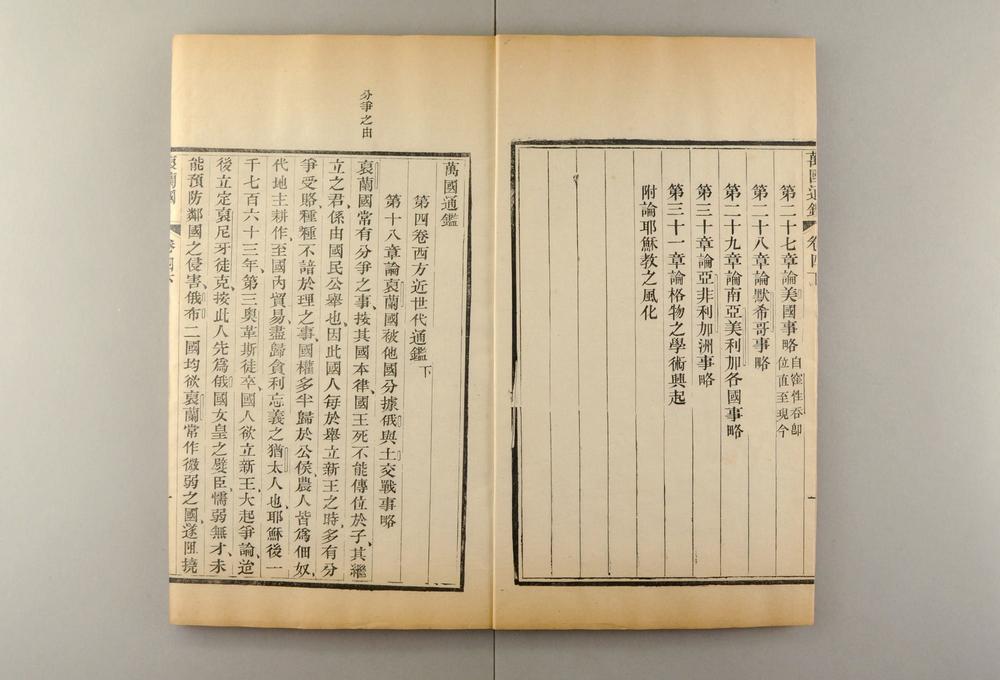 萬國通鑑 卷四下
第二十七章論美國事略自窪性吞卽位直至現今
第二十八章論默希哥事略
第二十九章論南亞美利加各國事略
第三十章論亞非利加洲事略
第三十一章論格物之學術興起
附論耶穌教之風化
萬國通鑑
第四卷西方近世代通鑑下
第十八章論哀蘭國被他國分據俄與土交戰事略
分爭之由
哀蘭國常有分爭之事、按其國本律、國王死不能傳位於子、其繼
立之君、係由國民公舉也、因此國人每於舉立新王之時、多有分
爭受賂、種種不諳於理之事、國權多半歸於公侯、農人皆爲佃奴、
代地主耕作、至國內貿易、盡歸貪利忘義之猶太人也、耶穌後一
千七百六十三年、第三奧革斯徒卒、國人欲立新王、大起爭論、迨
後立定哀尼牙徒克、按此人先爲俄國女皇之嬖臣、懦弱無才、未
能預防鄰國之侵害、俄布二國均欲哀蘭常作微弱之國、遂匪撓
哀蘭國
一